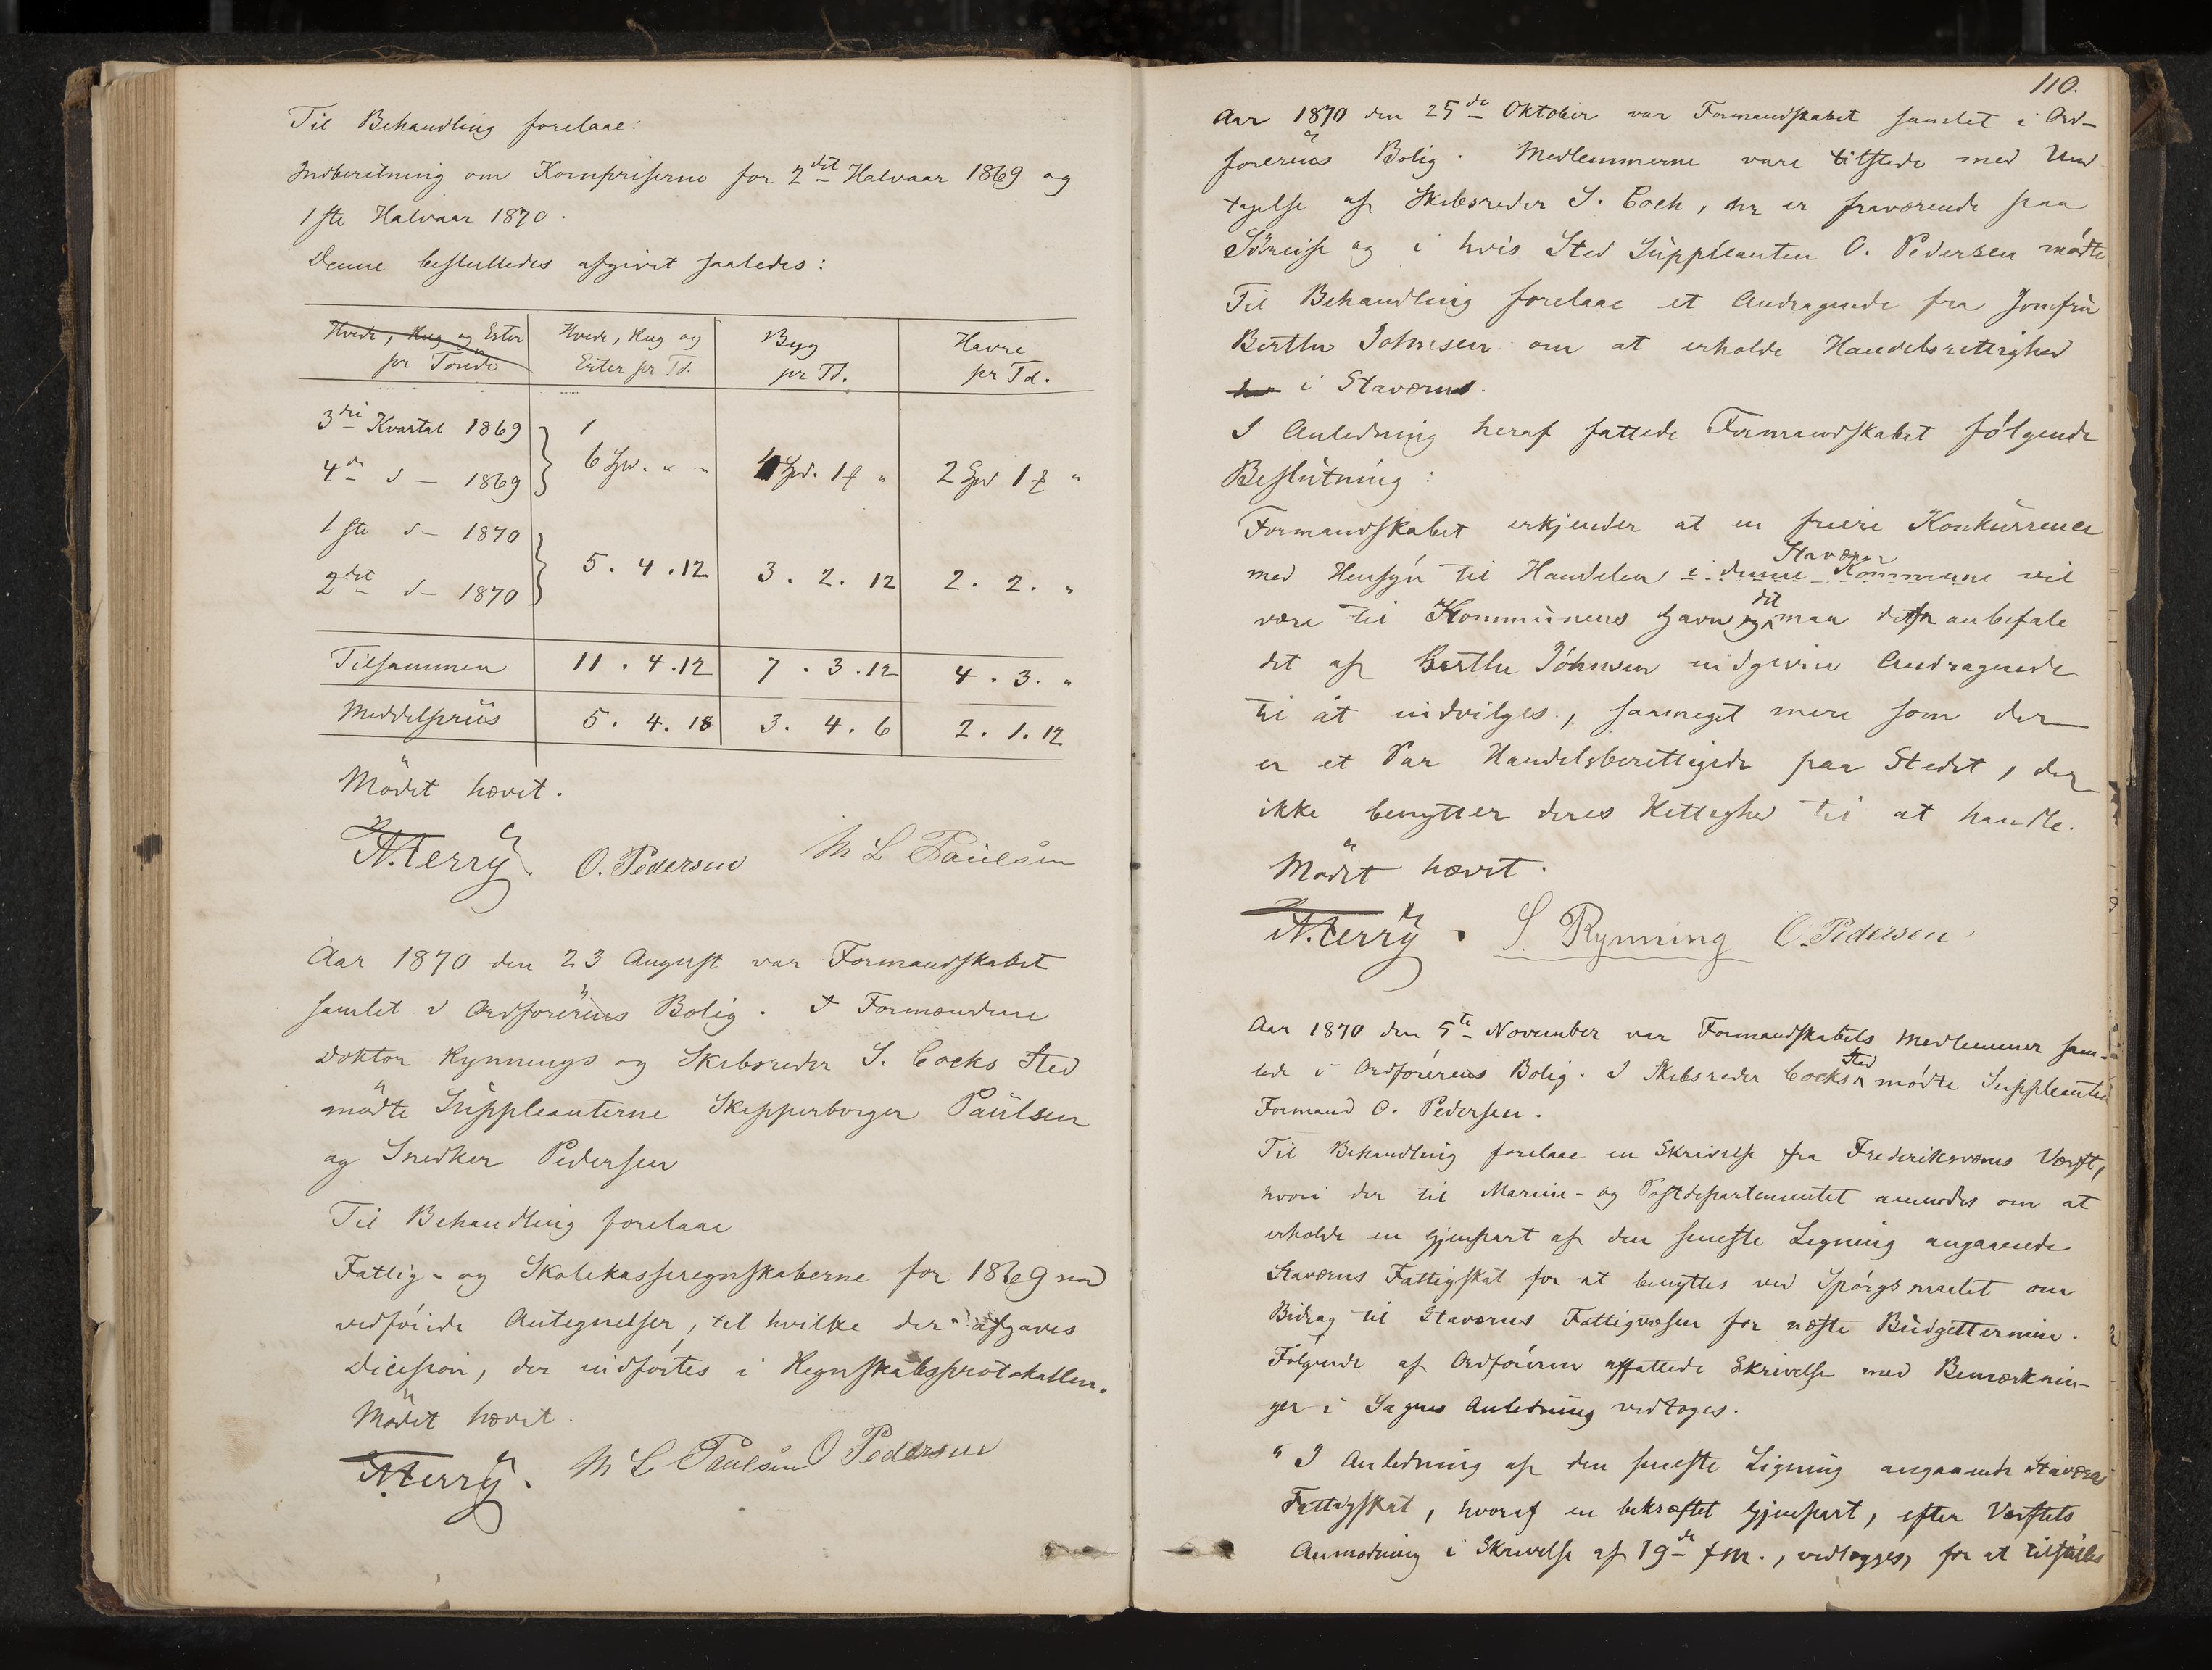 Til Behandling forelaae:
Indberetning om Kornpriserne for 2det Halvaar 1869 og
1ste Halvaar 1870.
Denne besluttedes afgivet saaledes:
Hvede, Rug og Erter pr Tönde
Hvede, Rug og Erter pr Td.
Byg pr Td.
Havre pr Td.
3die Kvartal 1869
4de d— 1869
6 Spd. " "
4 Spd. 1 ꝑ "
2 Spd 1 ꝑ "
1ste d— 1870
2det d— 1870
5. 4. 12
3. 2. 12
2. 2. "
Tilsammen 11. 4. 12 7. 3. 12 4. 3. "
Middelpriis 5. 4. 18 3. 4. 6 2. 1. 12
Mödet hævet.
N. Terry. O. Pedersen M L Paulsen
Aar 1870 den 23 August var Formandskabet
samlet i Ordförerens Bolig. I Formændene
Doktor Rynnings og Skibsreder S. Cocks Sted
mödte Suppleanterne Skipperborger Paulsen
og Snedker Pedersen
Til Behandling forelaae
Fattig- og Skolekasseregnskaberne for 1869 med
vedföiede Antegnelser, til hvilke der afgaves
Decision, der indförtes i Regnskabsprotokollen.
Mödet hævet.
N. Terry. M L Paulsen O Pedersen
110.
Aar 1870 den 25de Oktober var Formandskabet samlet i Ord-
förerens Bolig. Medlemmerne vare tilstede med Und
tagelse af Skibsreder S. Cock, der er fraværende paa
Söreise og i hvis Sted Suppleanten O. Pedersen mödte
Til Behandling forelaae et Andragende fra Jomfru
Berthe Johnsen om at erholde Handelsrettighed
i Staværns.
I Anledning heraf fattede Formandskabet fölgende
Beslutning:
Formandskabet erkjender at en friere Konkurrence
med Hensyn til Handelen i denne Kommune Staværn vil
være til Kommunens Gavn og det maa derfor anbefale
det af Berthe Johnsen indgivne Andragende
til at indvilges, saameget mere som der
er et Par Handelsberettigede paa Stedet, der
ikke benytter deres Rettighed til at handle.
Mödet hævet.
N. Terry. S. Rynning O. Pedersen
Aar 1870 den 5te November var Formandskabets Medlemmer sam-
lede i Ordförerens Bolig. I Skibsreder Cocks Sted mödte Suppleanten
Formand O. Pedersen.
Til Behandling forelaae en Skrivelse fra Frederiksværns Værft,
hvori der til Marine- og Postdepartementet anmodes om at
erholde en Gjenpart af den seneste Ligning angaaende
Staværns Fattigskat for at benyttes ved Spörgsmaalet om
Bidrag til Staværns Fattigvæsen for næste Budgettermin.
Fölgende af Ordföreren affattede Skrivelse med Bemærknin-
ger i Sagens Anledning vedtoges.
" I Anledning af den seneste Ligning angaaende Staværns
Fattigskat, hvoraf en bekræftet Gjenpart, efter Værftets
Anmodning i Skrivelse af 19de f.M., vedlægges, for at tilstilles